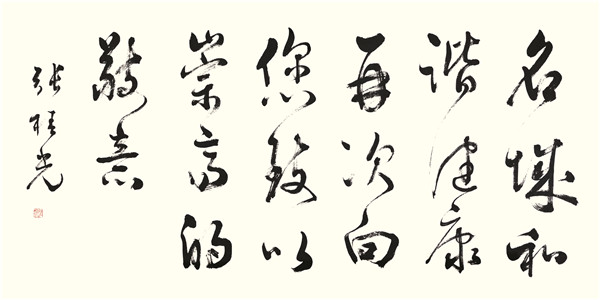 名城和
谐健康
再次向
您致以
崇高的
敬意
张桂光